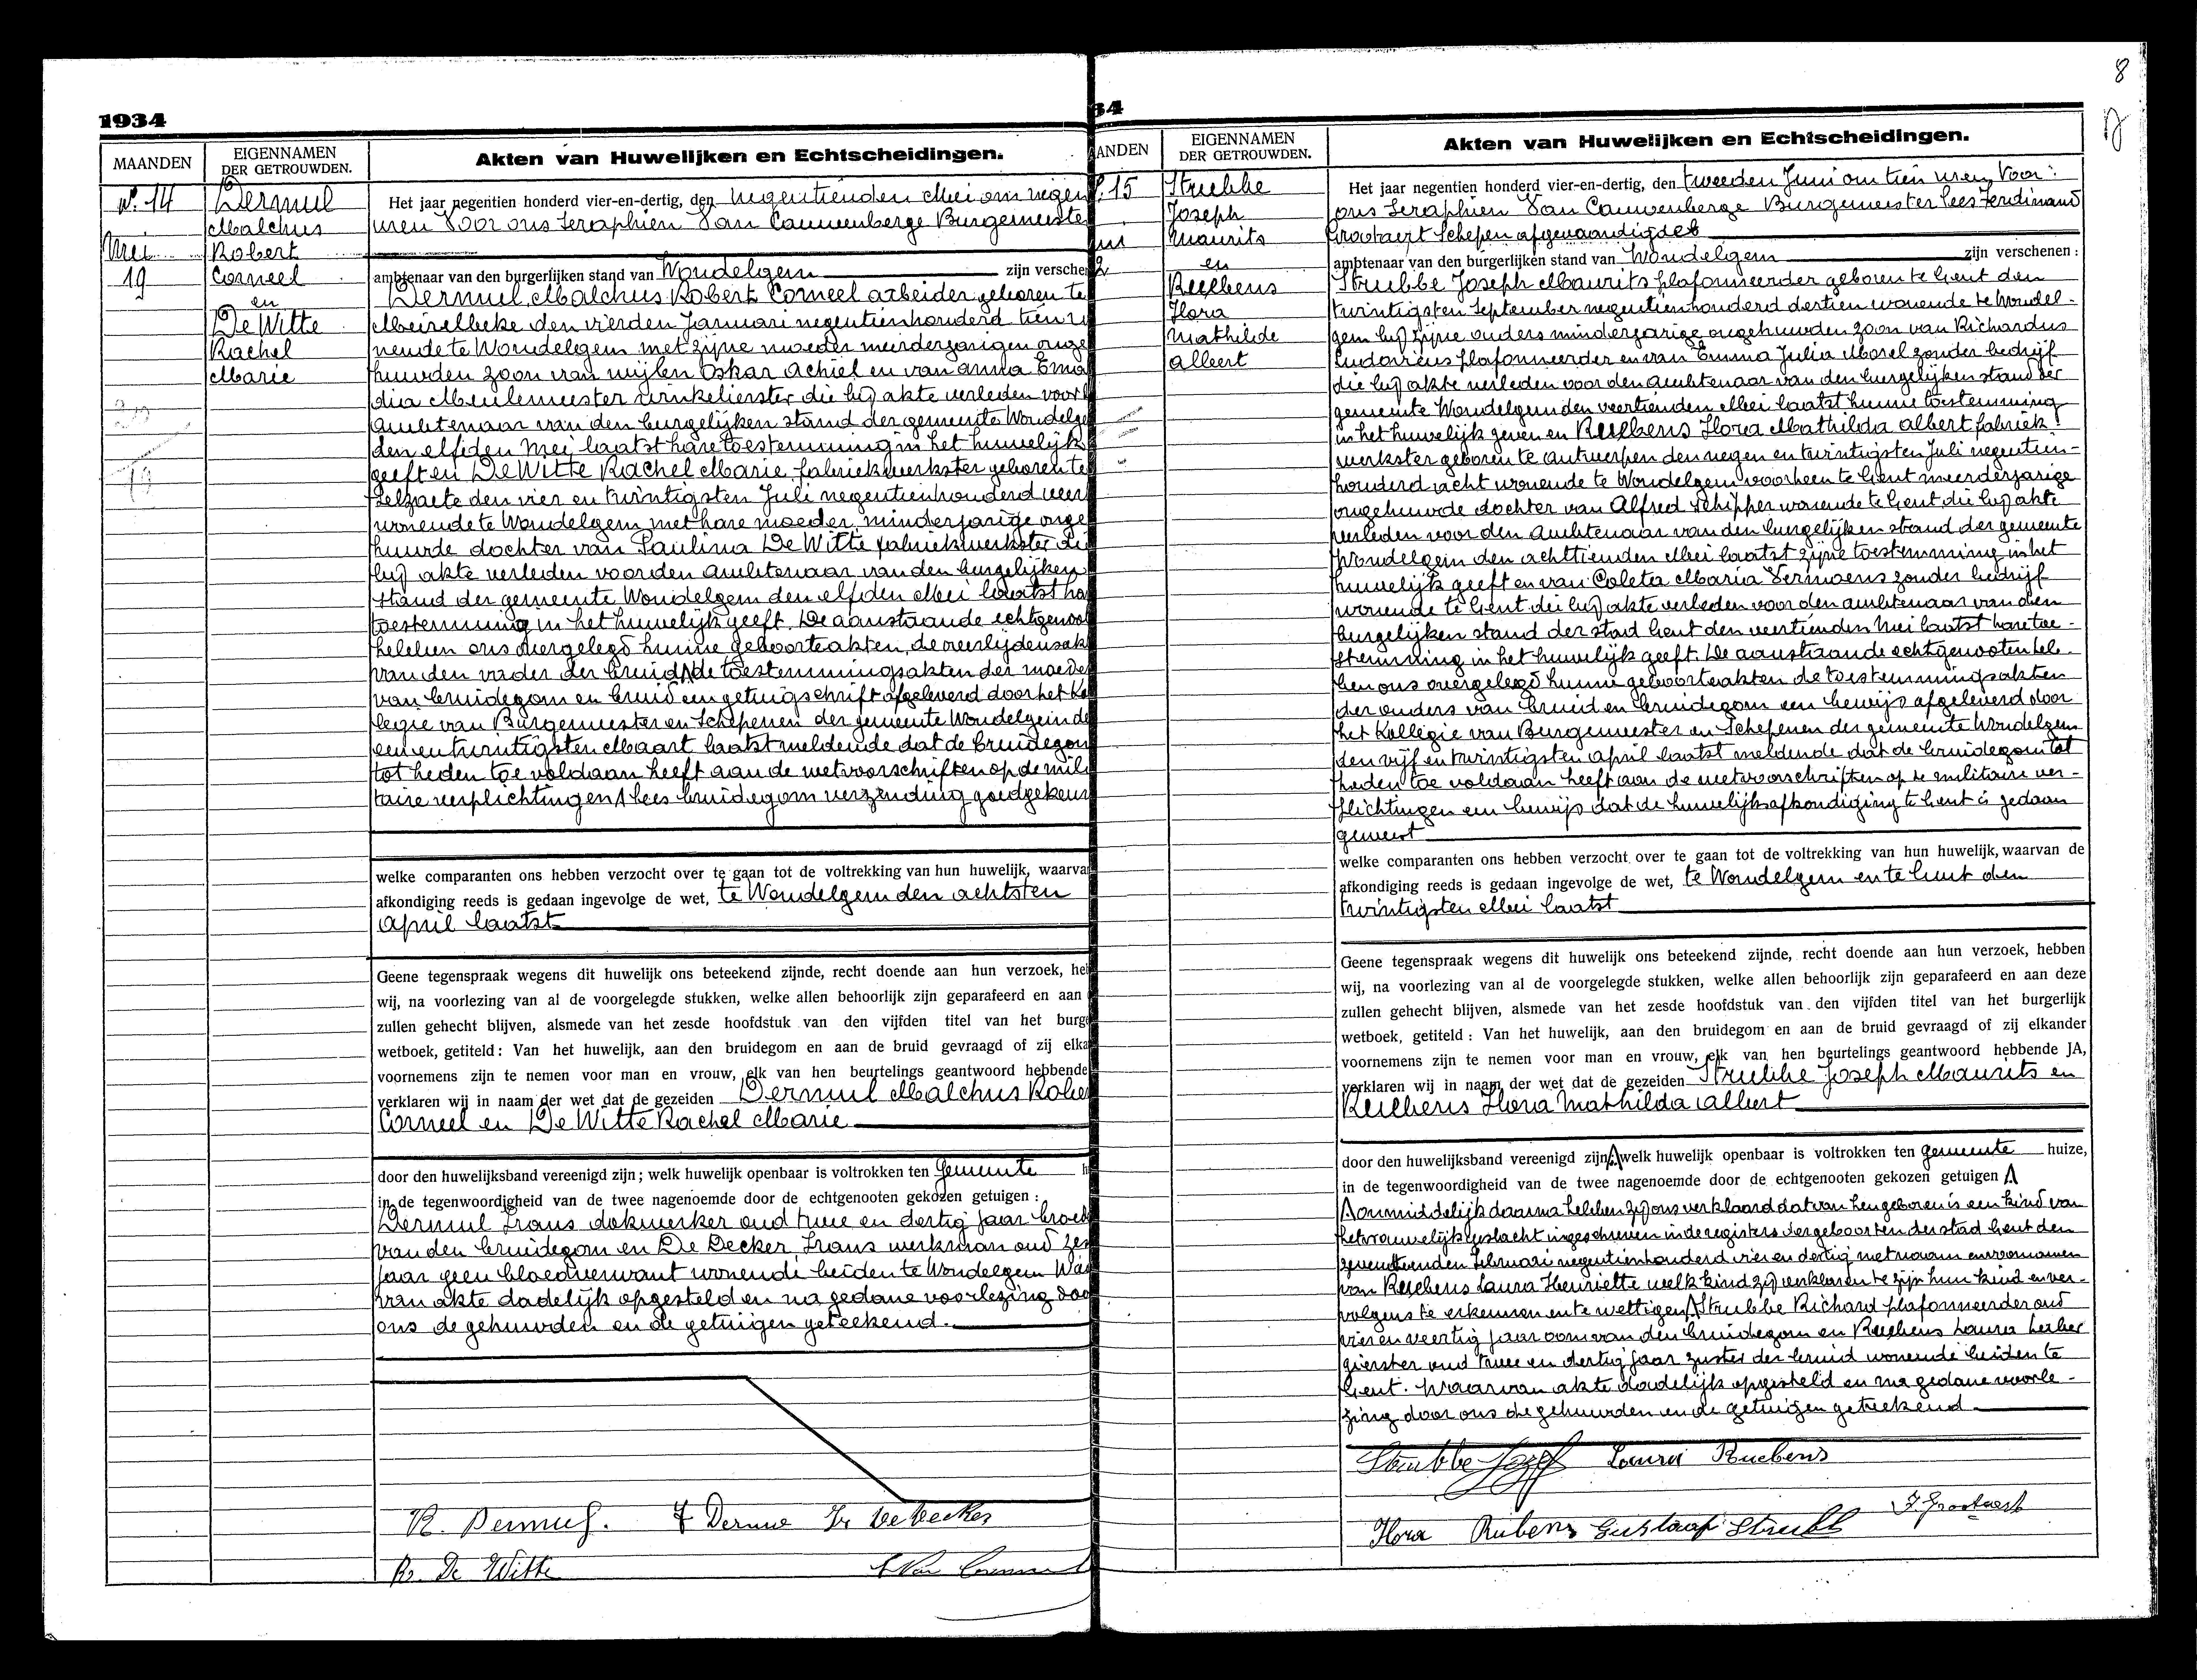 1934
MAANDEN
EIGENNAMEN
DER GETROUWDEN.
Akten van Huwelijken en Echtscheidingen.
N. 14
Mei
19
Dermul
Malchus
Robert
Corneel
en
De Witte
Rachel
Marie
Het jaar negentien honderd vier-en-dertig, den negentienden Mei om negen
uren Voor ons Seraphien Van Cauwenberge Burgemeeste
ambtenaar van den burgerlijken stand van Wondelgem zijn versche
Dermul Malchus Robert Corneel arbeider geboren te
Meirelbeke den vierden Januari negentienhonderd tien w
nende te Wondelgem met zijne moeder meerderjarigen onge
huwden zoon van wijlen Oskar Achiel en van Anna Ema
dia Meulemeester winkelierster die bij akte verleden voor
Ambtenaar van den burgelijken stand der gemeente Wondelge
den elfden Mei laatst hare toestemming in het huwelijk
geeft en De Witte Rachel Marie fabriekwerkster geboren te
Selzaete den vier en twintigsten Juli negentienhonderd veer
wonende te Wondelgem met hare moeder, minderjarige onge
huwde dochter van Paulina De Witte fabriekwerkster di
bij akte verleden voor den Ambtenaar van den burgelijken
stand der gemeente Wondelgem den elfden Mei laatst ha
toestemming in het huwelijk geeft. De aanstaande echtgenoo
hebben ons overgelegd hunne geboorteakten, de overlijdensak
van den vader der bruid de toestemmingsakten der moeder
van bruidegom en bruid een getuigschrift afgeleverd door het Ko
legie van Burgemeester en Schepenen der gemeente Wondelgem de
een en twintigsten Maart laatst meldende dat de bruidegom
tot heden toe voldaan heeft aan de wetvoorschriften op de mili
taire verplichtingen lees bruidegom verzending goedgekeur
welke comparanten ons hebben verzocht over te gaan tot de voltrekking van hun huwelijk, waarva
afkondiging reeds is gedaan ingevolge de wet, te Wondelgem den achtsten
April laatst
Geene tegenspraak wegens dit huwelijk ons beteekend zijnde, recht doende aan hun verzoek, he
wij, na voorlezing van al de voorgelegde stukken, welke allen behoorlijk zijn geparafeerd en aan
zullen gehecht blijven, alsmede van het zesde hoofdstuk van den vijfden titel van het burge
wetboek, getiteld: Van het huwelijk, aan den bruidegom en aan de bruid gevraagd of zij elka
voornemens zijn te nemen voor man en vrouw, elk van hen beurtelings geantwoord hebbende
verklaren wij in naam der wet dat de gezeiden Dermul Malchus Robe
Corneel en De Witte Rachel Marie
door den huwelijksband vereenigd zijn; welk huwelijk openbaar is voltrokken ten Gemeente h
in de tegenwoordigheid van de twee nagenoemde door de echtgenooten gekozen getuigen:
Dermul Frans dokwerker oud twee en dertig jaar broed
van den bruidegom en De Decker Frans werkman oud zes
jaar geen bloedverwant wonende beiden te Wondelgem Waa
van akte dadelijk opgesteld en na gedane voorlezing doo
ons de gehuwden en de getuigen geteekend.
R. Dermul. F Dermu Fr De Decker
R. De Witte
34
ANDEN
EIGENNAMEN
DER GETROUWDEN.
Akten van Huwelijken en Echtscheidingen.
8
15
2
Strubbe
Joseph
Maurits
en
Ruebens
Flora
Mathilde
Albert
Het jaar negentien honderd vier-en-dertig, den tweeden Juni om tien uren, Voor
ons Seraphien Van Cauwenberge Burgemeester lees Ferdinand
Grootaert Schepen afgevaardigdet
ambtenaar van den burgerlijken stand van Wondelgem zijn verschenen:
Strubbe Joseph Maurits plafonneerder geboren te Gent den
twintigsten September negentienhonderd dertien wonende te Wondel-
gem bij zijne ouders minderjarige ongehuwden zoon van Richardus
Ludovicus plafonneerder en van Emma Julia Morel zonder bedrijf
die bij akte verleden voor den Ambtenaar van den burgelijken stand der
gemeente Wondelgem den veertienden Mei laatst hunne toestemming
in het huwelijk geven en Ruebens Flora Mathilda Albert fabriek
werkster geboren te Antwerpen den negen en twintigsten Juli negentien-
honderd acht wonende te Wondelgem voorheen te Gent meerderjarige
ongehuwde dochter van Alfred Schipper wonende te Gent die bij akte
verleden voor den Ambtenaar van den burgelijken stand der gemeente
Wondelgem den achttienden Mei laatst zijne toestemming in het
huwelijk geeft en van Coleta Maria Vermoens zonder bedrijf
wonende te Gent die bij akte verleden voor den ambtenaar van den
burgelijken stand der stad Gent den veertienden Mei laatst hare toe-
stemming in het huwelijk geeft. De aanstaande echtgenooten heb-
ben ons overgelegd hunne geboorteakten de toestemmingsakten
der ouders van bruid en bruidegom een bewijs afgeleverd door
het Kollegie van Burgemeester en Schepenen der gemeente Wondelgem
den vijf en twintigsten April laatst meldende dat de bruidegom tot
heden toe voldaan heeft aan de wetvoorschriften op de militaire ver-
plichtingen een bewijs dat de huwelijksafkondiging te Gent is gedaan
geweest
welke comparanten ons hebben verzocht over te gaan tot de voltrekking van hun huwelijk, waarvan de
afkondiging reeds is gedaan ingevolge de wet, te Wondelgem en te Gent den
twintigsten Mei laatst
Geene tegenspraak wegens dit huwelijk ons beteekend zijnde, recht doende aan hun verzoek, hebben
wij, na voorlezing van al de voorgelegde stukken, welke allen behoorlijk zijn geparafeerd en aan deze
zullen gehecht blijven, alsmede van het zesde hoofdstuk van den vijfden titel van het burgerlijk
wetboek, getiteld: Van het huwelijk, aan den bruidegom en aan de bruid gevraagd of zij elkander
voornemens zijn te nemen voor man en vrouw, elk van hen beurtelings geantwoord hebbende JA,
verklaren wij in naam der wet dat de gezeiden Strubbe Joseph Maurits en
Ruebens Flora Mathilda Albert
door den huwelijksband vereenigd zijn; welk huwelijk openbaar is voltrokken ten gemeente huize,
in de tegenwoordigheid van de twee nagenoemde door de echtgenooten gekozen getuigen
Onmiddelijk daarna hebben zij ons verklaard dat van hen geboren is een kind van
het vrouwelijk geslacht ingeschreven in de registers der geboorten der stad Gent den
zeventienden Februari negentienhonderd vier en dertig met naam en voornamen
van Ruebens Laura Henriette welk kind zij verklaren te zijn hun kind en ver-
volgens te erkennen en te wettigen Strubbe Richard plafonneerder oud
vier en veertig jaar oom van den bruidegom en Ruebens Laura herber
gierster oud twee en dertig jaar zuster der bruid wonende beiden te
Gent. Waarvan akte dadelijk opgesteld en na gedane voorle-
zing door ons de gehuwden en de getuigen geteekend
Strubbe Jozef Laura Ruebens
Flora Rubens Gustaaf Strubb F. Grootaert